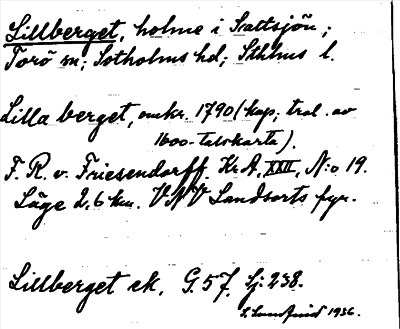 Lillberget, holme i Sattsjön;
Torö sn; Sotholms hd; Sthlms l.
Lilla berget, omkr. 1790 (kop; trol. av
1600-talskarta).
F. R. v. Friesendorff. Kr.A. XXII, N:o 19.
Läge 2,6 km. VNV Landsorts fyr.
Lillberget ek. G. 57. Lj: 238.
S. 1936.